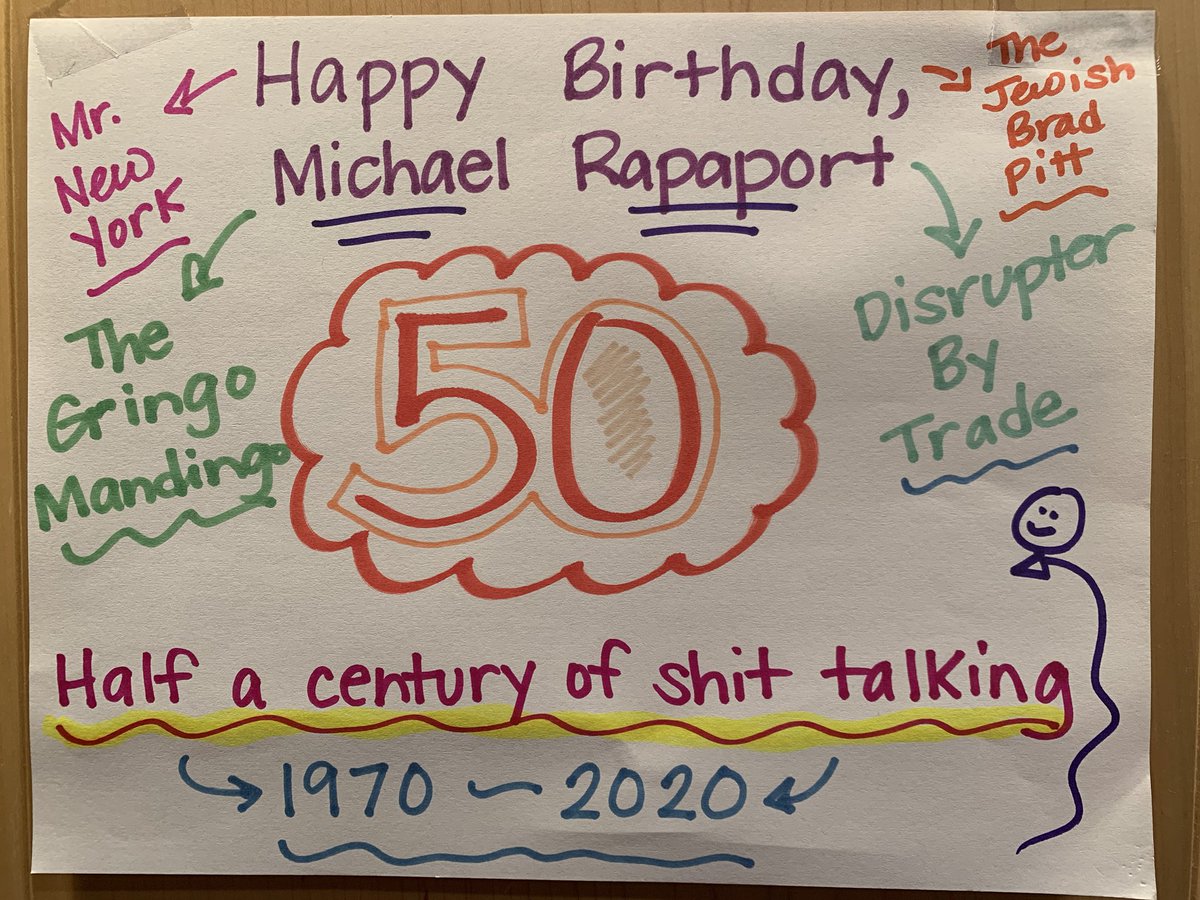 Happy Birthday,
Michael Rapaport
Mr.
New
York
The
Jewish
Brad
Pitt
The
Gringo
Mandingo
50
Disrupter
By
Trade
Half a century of shit talking
1970 - 2020